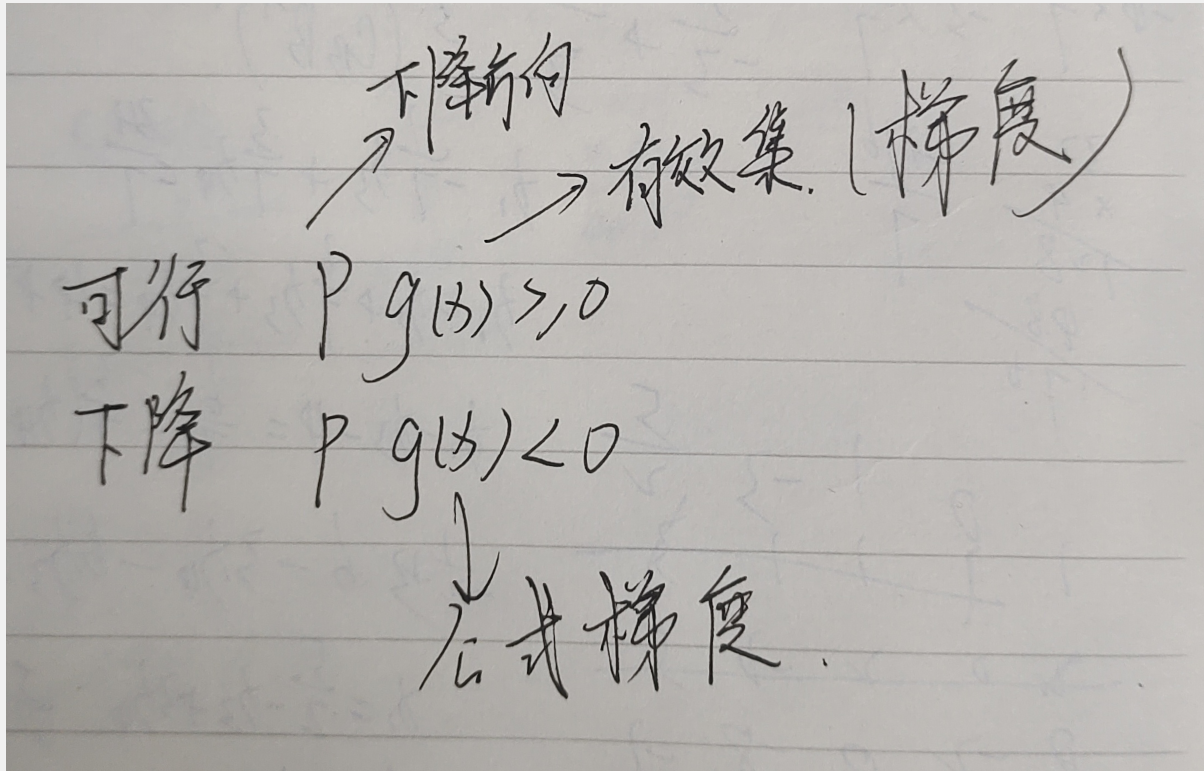 下降方向
有效集.(梯度)
可行 P g(x) ≥ 0
下降 P g(x) < 0
公式梯度.